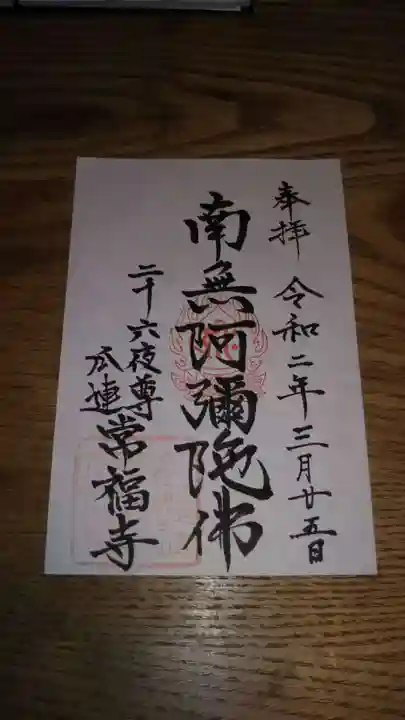 奉拝
令和二年三月廿五日
南無阿彌陀佛
二十六夜尊
瓜連常福寺